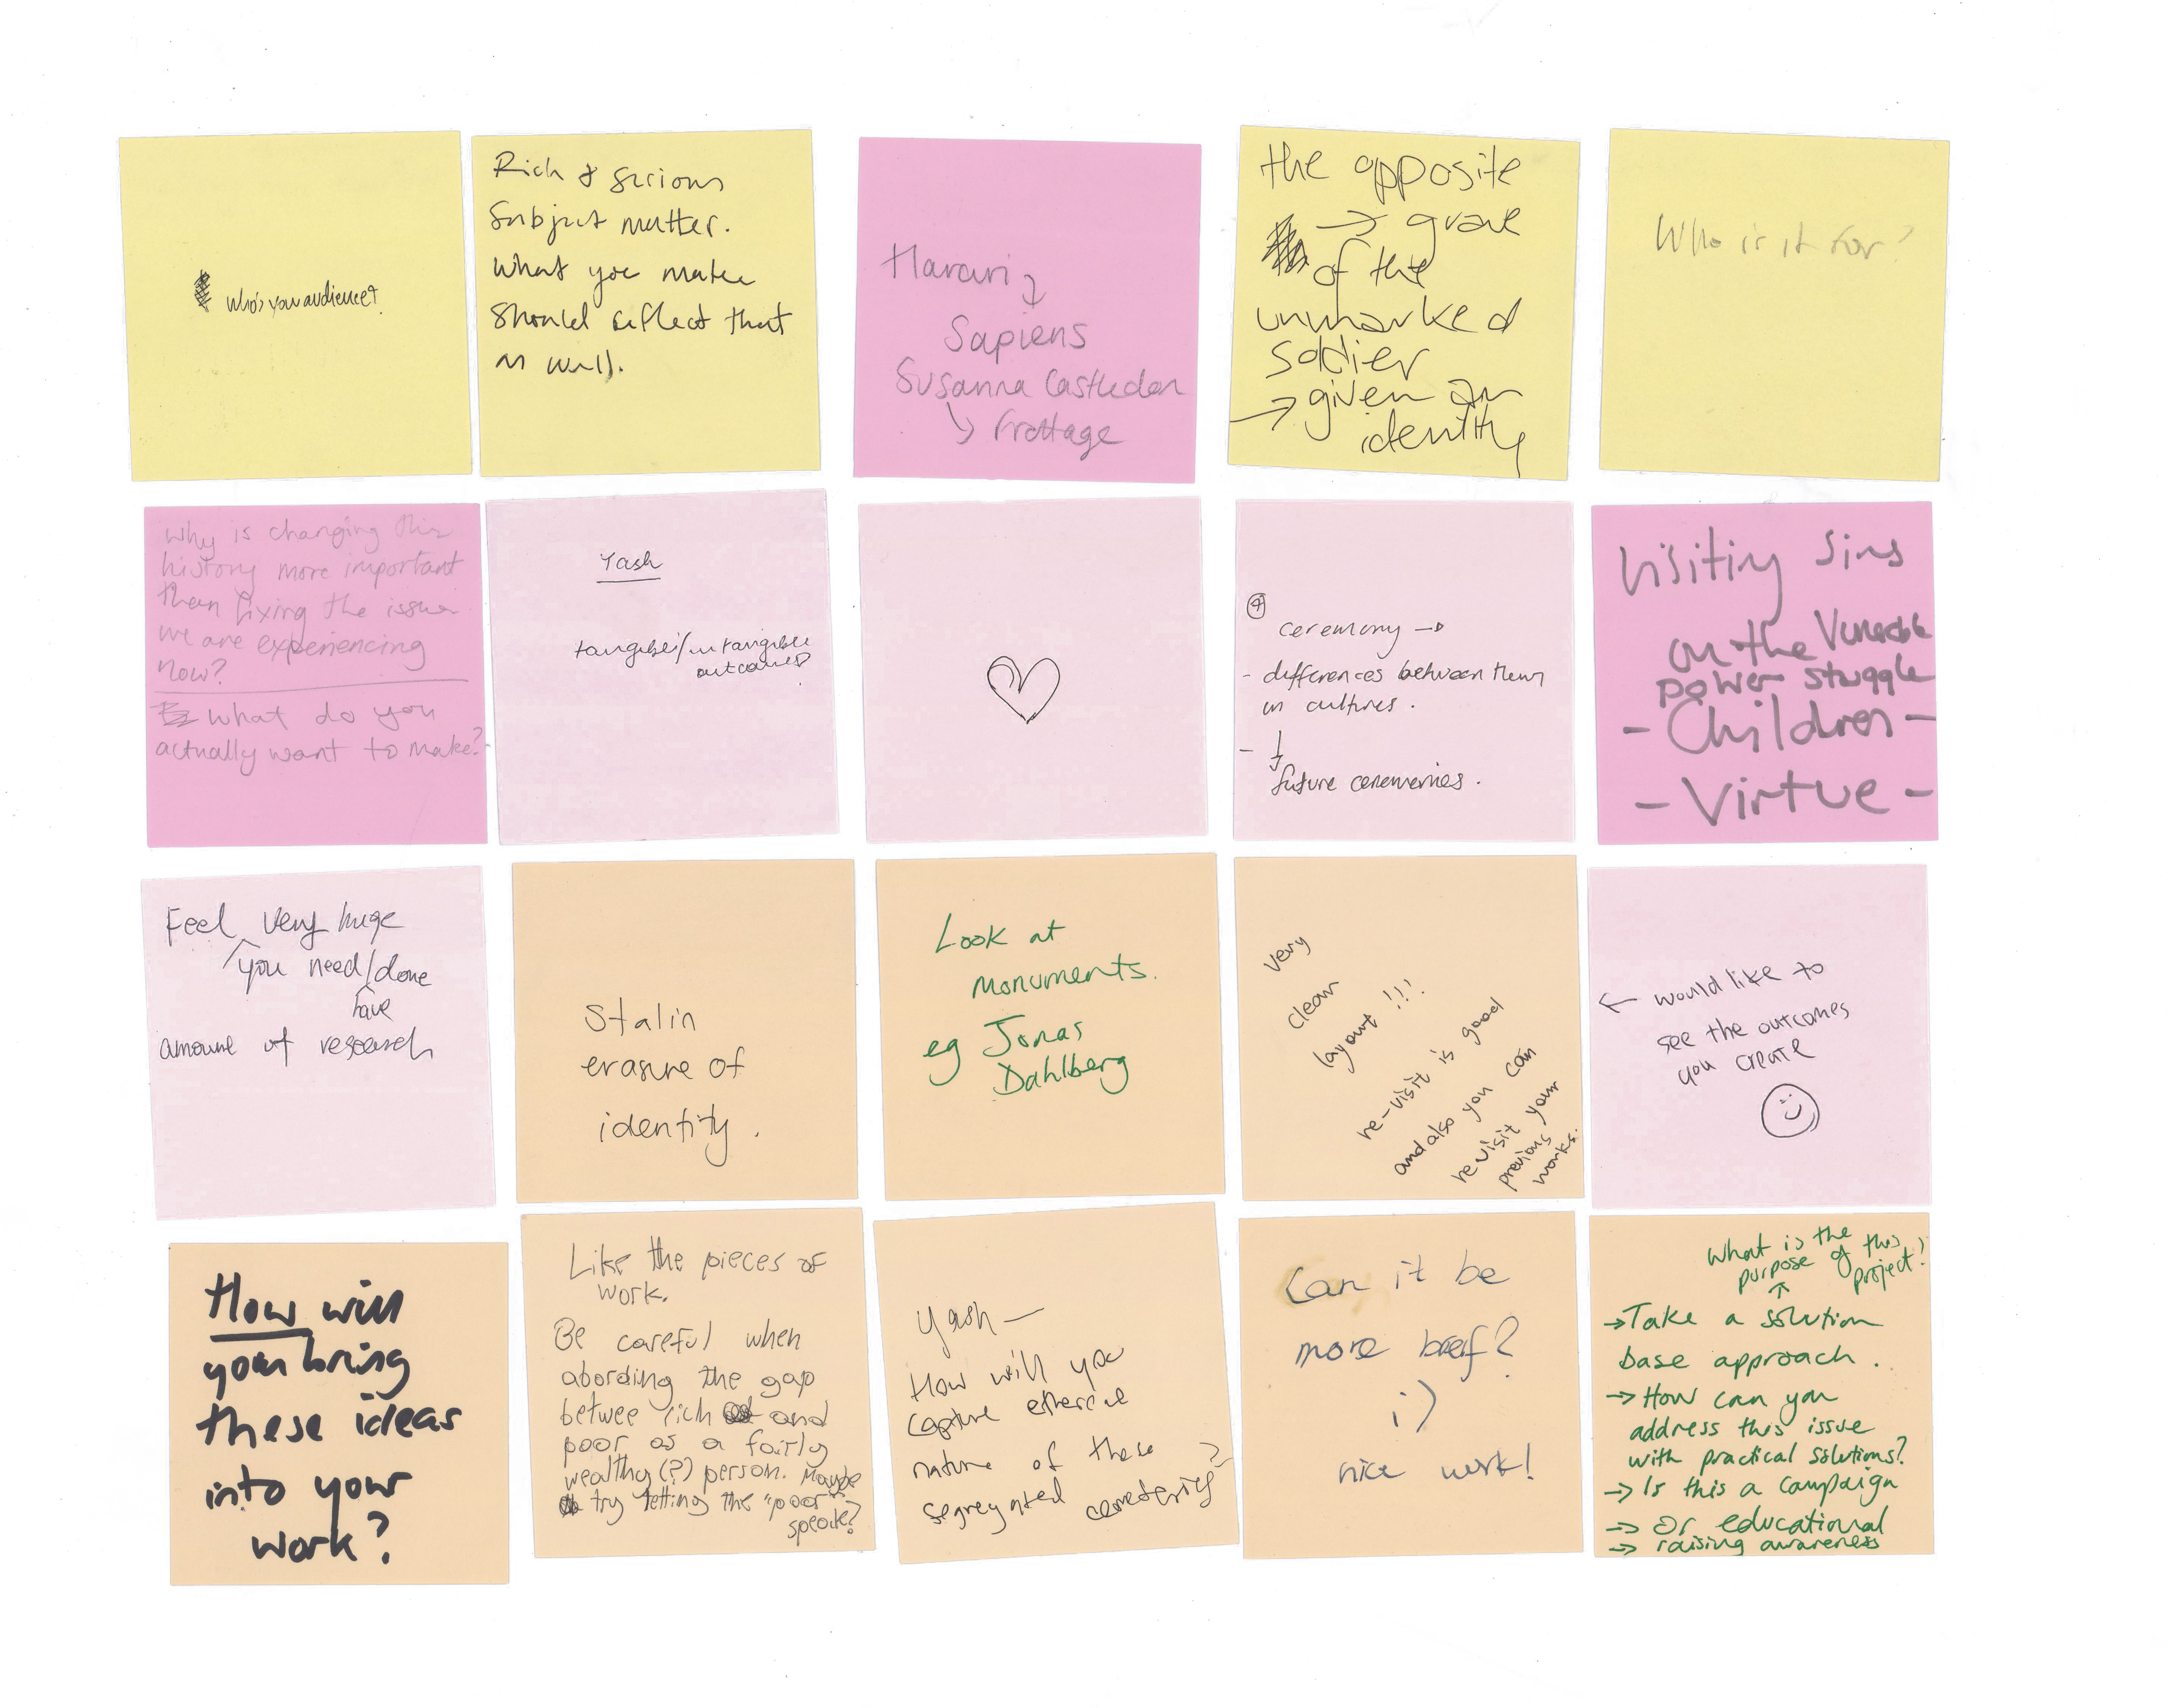 who's you audience?
Rich & serious
subject matter.
What you make
should reflect that
as well.
Harari
Sapiens
Susanna Castleden
↳ Frottage
the opposite
→ grave
of the
unmarked
soldier
→ given an
identity
Who is it for?
Why is changing this
history more important
than fixing the issue
we are experiencing
now?
what do you
actually want to make?
Yash
tangible/intangible
outcomes?
④
ceremony →
- differences between them
in cultures.
- ↓
future ceremonies.
Visiting Sins
on the
power struggle
- Children -
- Virtue -
Feel very huge
you need/done
have
amount of research
Stalin
erasure of
identity.
Look at
monuments.
eg Jonas
Dahlberg
very
clear
layout !!!
re-visit is good
and also you can
revisit your
previous
works.
← would like to
see the outcomes
you create
How will
your bring
these ideas
into your
work?
Like the pieces of
work.
Be careful when
abording the gap
betwee rich and
poor as a fairly
wealthy (?) person. Maybe
try letting the "poor"
speak?
Yash —
How will you
capture ethereal
nature of these
segregated cemeteries?
Can it be
more breif?
:)
nice work!
What is the
purpose of this
project?
↑
→ Take a solution
base approach.
→ How can you
address this issue
with practical solutions?
→ Is this a campaign
→ Or educational
→ raising awareness